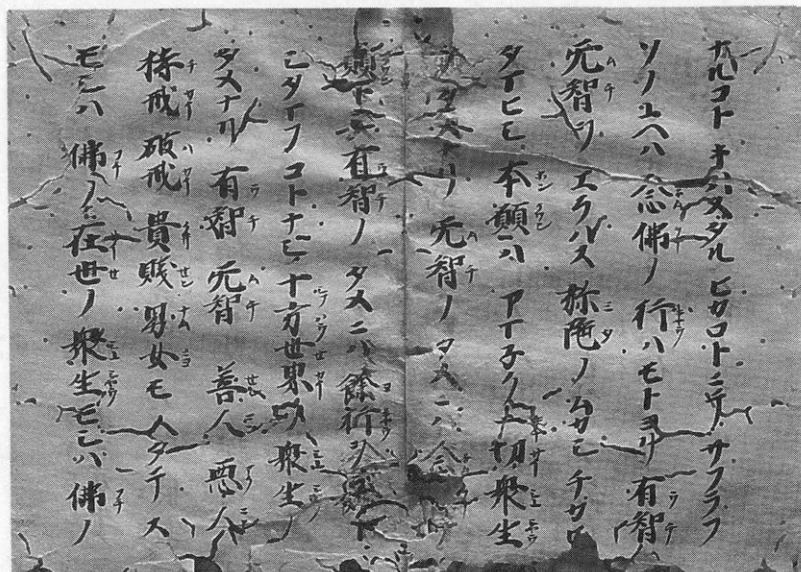 カルコト キハメタル ヒカコトニテ サフラフ
ソノユヘハ 念佛ノ 行ハモトヨリ 有智
无智ヲ エラハス 弥陀ノ ムカシ チカヒ
タマヒシ 本願ハ アマネク 一切衆生
ノタメナリ 无智ノ タメニハ 念
願トシ 有智ノ タメニハ 餘行ヲ 願ト
シタマフ コトナシ 十方世界ノ 衆生ノ
タメナリ 有智 无智 善人 惡人
持戒 破戒 貴賤 男女モ ヘタテス
モシハ 佛ノ 在世ノ 衆生 モシハ 佛ノ